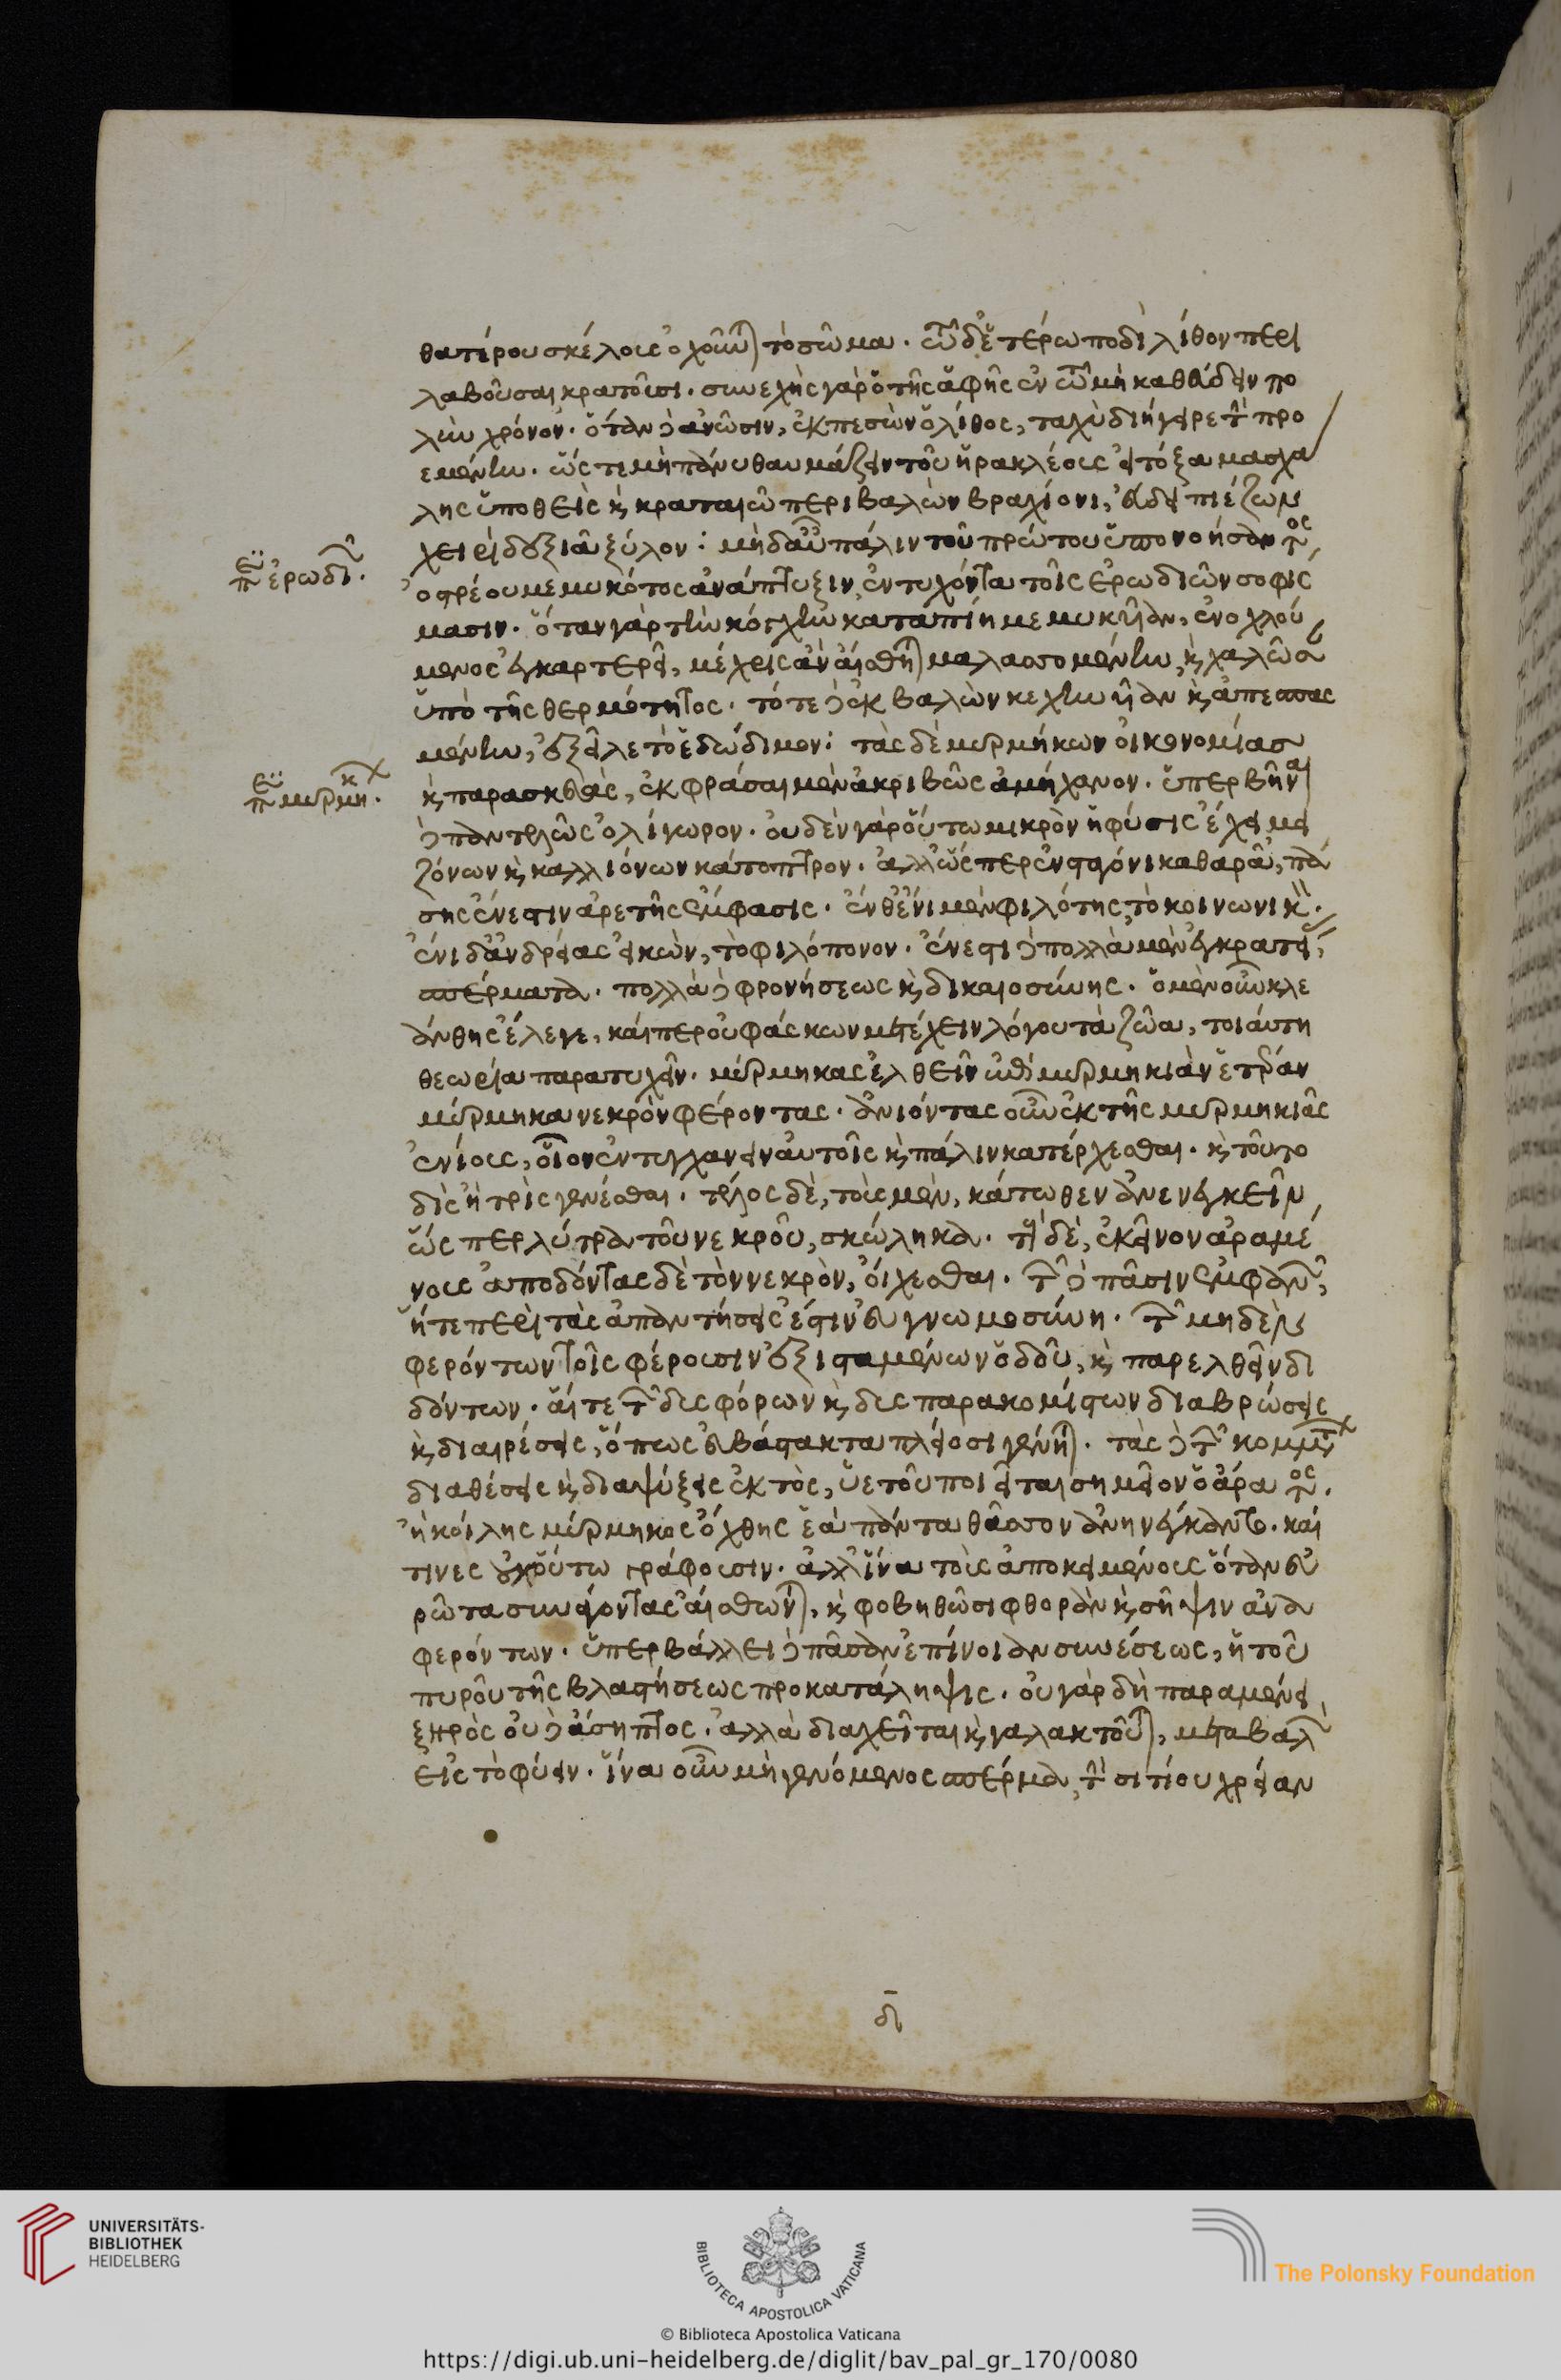 θατέρου σκέλους ὀχοῦνται τὸ σῶμα. τῷ δ' ἑτέρω ποδὶ λίθον περι
λαβοῦσαι κρατοῦσι. συνεχὴς γὰρ ὁ τῆς ἁφῆς ἐν τῷ μὴ καθεύδειν πο
λὺν χρόνον. ὅταν δὲ ἀνῶσιν, ἐκπεσὼν ὁ λίθος, ταχὺ διήγειρε τὴν προ
εμένην. ὥς τε μὴ πάνυ θαυμάζειν τοῦ ἡρακλέους εἰ τόξα μασχα
λης ὑποθεὶς καὶ κραταιῶ περιβαλὼν βραχίονι, εὕδει πιέζων
χειρὶ δεξιᾶ ξύλον: μὴ δ' αὖ πάλιν τοῦ πρώτου ὑπονοήσαντος
ὀστρέου μεμυκότος ἀνάπτυξιν, ἐντυχόντα τοῖς ἐρωδιῶν σοφίς
μασιν. ὅταν γὰρ τὴν κόγχην καταπίη μεμυκυῖαν, ἐνοχλού
μενος ἐγκαρτερεῖ, μέχρις ἂν αἴσθηται μαλασσομένην, καὶ χαλῶσαν
ὑπὸ τῆς θερμότητος. τότε δὲ ἐκβαλὼν κεχηνυῖαν καὶ ἀπεσπας
μένην, ἐξεῖλε τὸ ἐδώδιμον: τὰς δὲ μυρμήκων οἰκονομίας
καὶ παρασκευὰς, ἐκφράσαι μὲν ἀκριβῶς ἀμήχανον. ὑπερβῆναι
δὲ παντελῶς ὀλίγωρον. οὐδὲν γὰρ οὕτω μικρὸν ἡ φύσις ἔχει μει
ζόνων καὶ καλλιόνων κάτοπτρον. ἀλλ' ὥς περ ἐν σταγόνι καθαρᾶ, πά
σης ἔνεστιν ἀρετῆς ἔμφασις. ἔνθ' ἔνι μὲν φιλότης, τὸ κοινωνικὸν.
ἔνι δ' ἀνδρείας εἰκὼν, τὸ φιλόπονον. ἔνεστι δὲ πολλὰ μὲν ἐγκρατείας
σπέρματα. πολλὰ δὲ φρονήσεως καὶ δικαιοσύνης. ὁ μὲν οὖν κλε
άνθης ἔλεγε, καίπερ οὐ φάσκων μετέχειν λόγου τὰ ζῶα, τοιαύτη
θεωρία παρατυχεῖν. μύρμηκας ἐλθεῖν ἐπὶ μυρμηκιὰν ἑτέραν
μύρμηκα νεκρὸν φέροντας. ἀνιόντας οὖν ἐκ τῆς μυρμηκιᾶς
ἐνίους, οἷον ἐντυγχάνειν αὐτοῖς καὶ πάλιν κατέρχεσθαι. καὶ τοῦτο
δὶς ἢ τρὶς γενέσθαι. τέλος δὲ, τοὺς μὲν, κάτωθεν ἀνενεγκεῖν
ὥς περ λύτρα τοῦ νεκροῦ, σκώληκα. τοὺς δὲ, ἐκεῖνον ἀραμέ
νους ἀποδόντας δὲ τὸν νεκρὸν, οἴχεσθαι. τῶν δὲ πᾶσιν ἐμφανῶν,
ἥ τε περὶ τὰς ἀπαντήσεις ἐστὶν εὐγνωμοσύνη. τῶν μηδὲν
φερόντων τοῖς φέρουσιν ἐξισταμένων ὁδοῦ, καὶ παρελθεῖν δι
δόντων. αἵ τε τῶν δυσφόρων καὶ δυσπαρακομίστων διαβρώσεις
καὶ διαιρέσεις, ὅπως εὐβάστακτα πλείοσι γένηται. τὰς δὲ τῶν κομμάτων
διαθέσεις καὶ διαψύξεις ἐκτὸς, ὑετοῦ ποιεῖται σημεῖον ὁ ἄρατος.
ἢ κοίλης μύρμηκος ὄχθης ἐὰ πάντα θᾶσσον ἀνηνέγκαντο. καί
τινες οὐχ οὕτω γράφουσιν. ἀλλ' ἵνα τοὺς ἀποκειμένους ὅταν εὐ
ρῶτα συνάγοντας αἴσθωνται, καὶ φοβηθῶσι φθορὰν καὶ σῆψιν ἀνα
φερόντων. ὑπερβάλλει δὲ πᾶσαν ἐπίνοιαν συνέσεως, ἡ τοῦ
πυροῦ τῆς βλαστήσεως προκατάληψις. οὐ γὰρ δὴ παραμένει
ξηρὸς οὐδ' ἄσηπτος. ἀλλὰ διαχεῖται καὶ γαλακτοῦται, μεταβάλλων
εἰς τὸ φύειν. ἵνα οὖν μὴ γενόμενος σπέρμα, τὴν σιτίου χρείαν
περὶ ἐρωδιῶν.
περὶ μυρμήκων.
δ
UNIVERSITÄTS-
BIBLIOTHEK
HEIDELBERG
BIBLIOTECA APOSTOLICA VATICANA
The Polonsky Foundation
© Biblioteca Apostolica Vaticana
https://digi.ub.uni-heidelberg.de/diglit/bav_pal_gr_170/0080